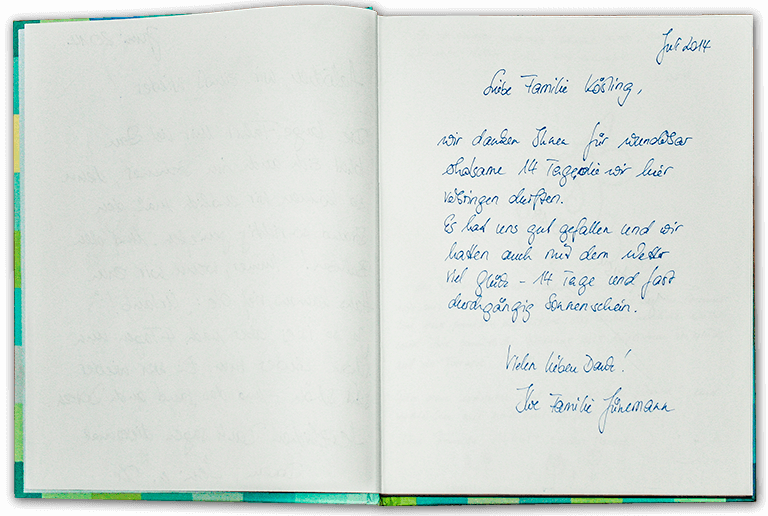 Juli 2014
Liebe Familie Kösling,
wir danken Ihnen für wunderbar
erholsame 14 Tage, die wir hier
verbringen durften.
Es hat uns gut gefallen und wir
hatten auch mit dem Wetter
viel Glück - 14 Tage und fast
durchgängig Sonnenschein.
Vielen lieben Dank!
Ihre Familie Jünemann